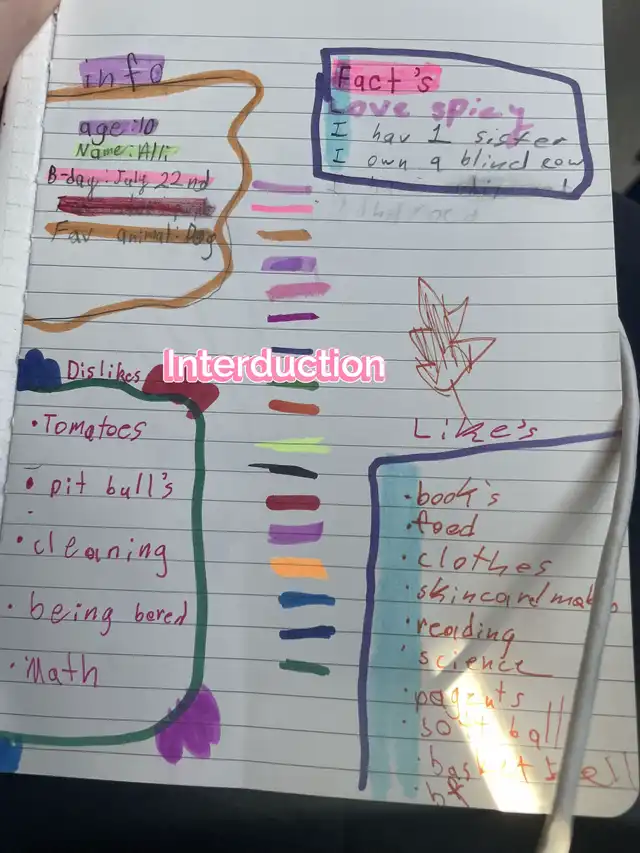 info
age:10
Name: Alli
B-day: July 22nd
Fav animal: Dog
Fact's
Love spicy
I hav 1 sister
I own a blind cow
Interduction
Dislikes
• Tomatoes
• pit bull's
• cleaning
• being bored
• Math
Like's
• book's
• food
• clothes
• skincare/
• reading
• science
• pagents
• soft ball
• basket ball